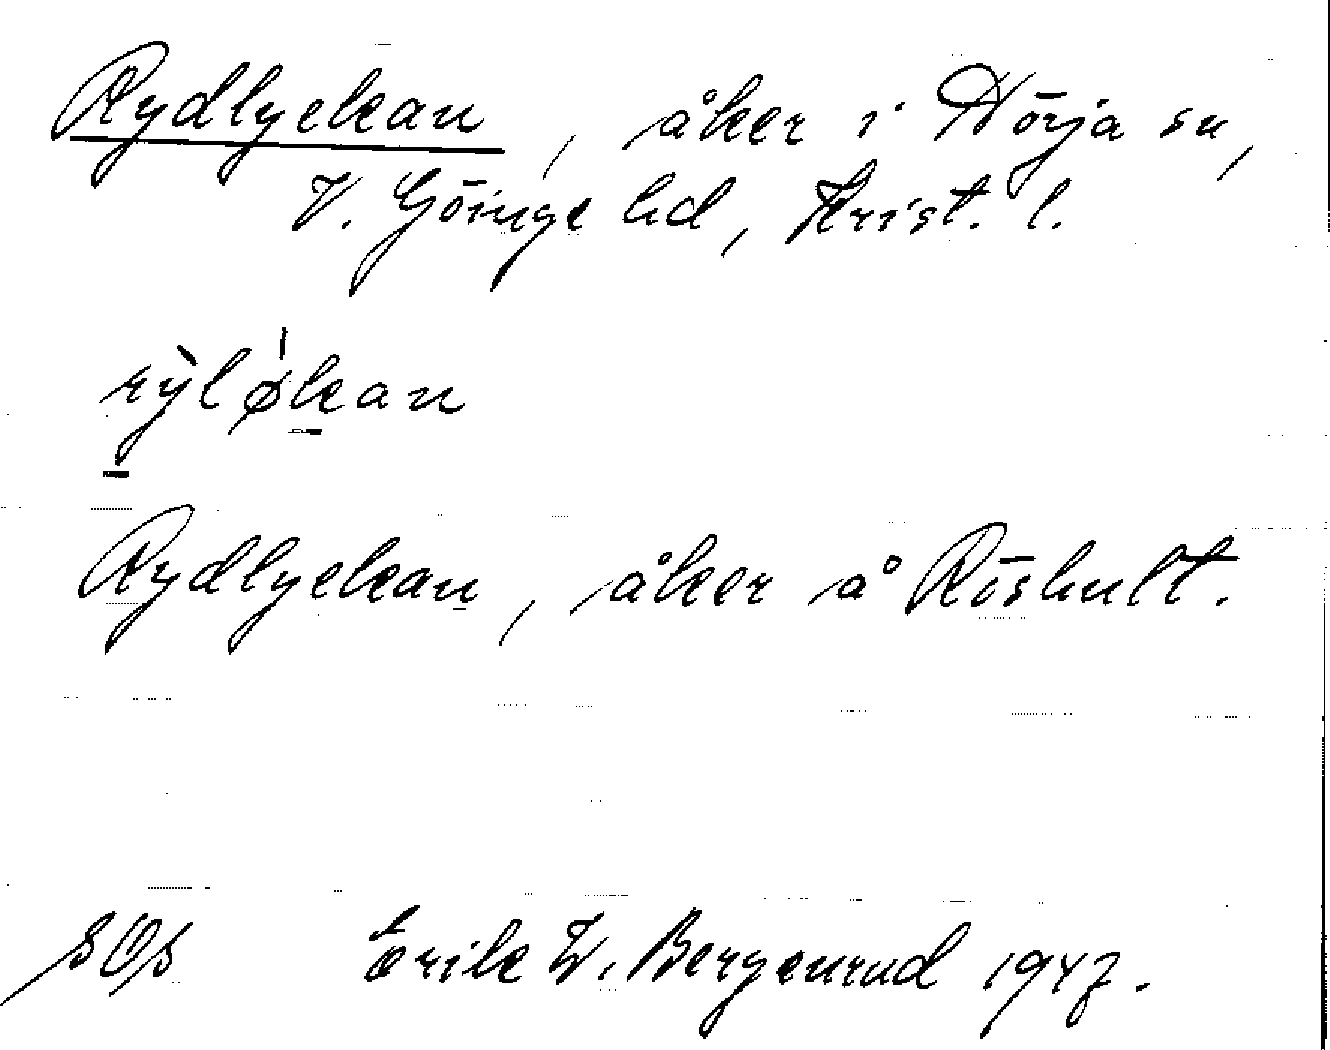 Rydlyckan, åker i Nörja sn,
V. Göinge hd, Krist. l.
rỳløkan
Rydlyckan, åker å Röshult.
Erik W. Bergenrud 1947.